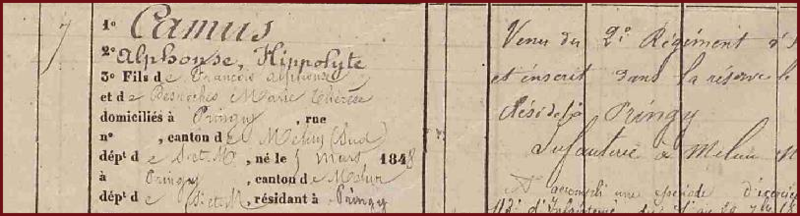 7
1º Camus
2º Alphonse, Hippolyte
3º Fils de François Alphonse
et de Desroches Marie Thérèse
domiciliés à Pringy, rue
nº , canton de Melun (Sud)
dépt de S.et.M., né le 5 mars 1848
à Pringy, canton de Melun
dépt de S.et.M., résidant à Pringy
Venu du 2e Régiment
et inscrit dans la réserve le
Réside à Pringy
Infanterie à Melun
A accompli une période d'exercices